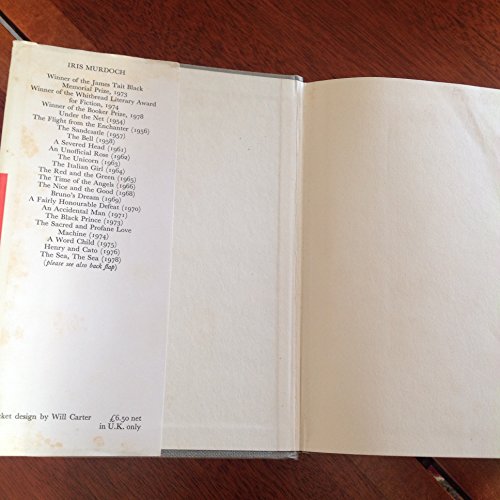 IRIS MURDOCH
Winner of the James Tait Black
Memorial Prize, 1973
Winner of the Whitbread Literary Award
for Fiction, 1974
Winner of the Booker Prize, 1978
Under the Net (1954)
The Flight from the Enchanter (1956)
The Sandcastle (1957)
The Bell (1958)
A Severed Head (1961)
An Unofficial Rose (1962)
The Unicorn (1963)
The Italian Girl (1964)
The Red and the Green (1965)
The Time of the Angels (1966)
The Nice and the Good (1968)
Bruno's Dream (1969)
A Fairly Honourable Defeat (1970)
An Accidental Man (1971)
The Black Prince (1973)
The Sacred and Profane Love
Machine (1974)
A Word Child (1975)
Henry and Cato (1976)
The Sea, The Sea (1978)
(please see also back flap)
cket design by Will Carter £6.50 net
in U.K. only